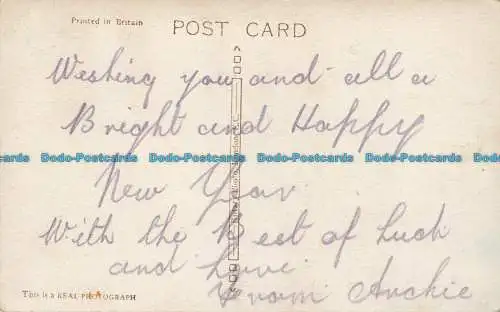 Printed in Britain
POST CARD
Wishing you and all a
Bright and Happy
Dodo-Postcards Dodo-Postcards Dodo-Postcards Dodo-Postcards
New Year
With the Best of Luck
and Love
From Archie
This is a REAL PHOTOGRAPH